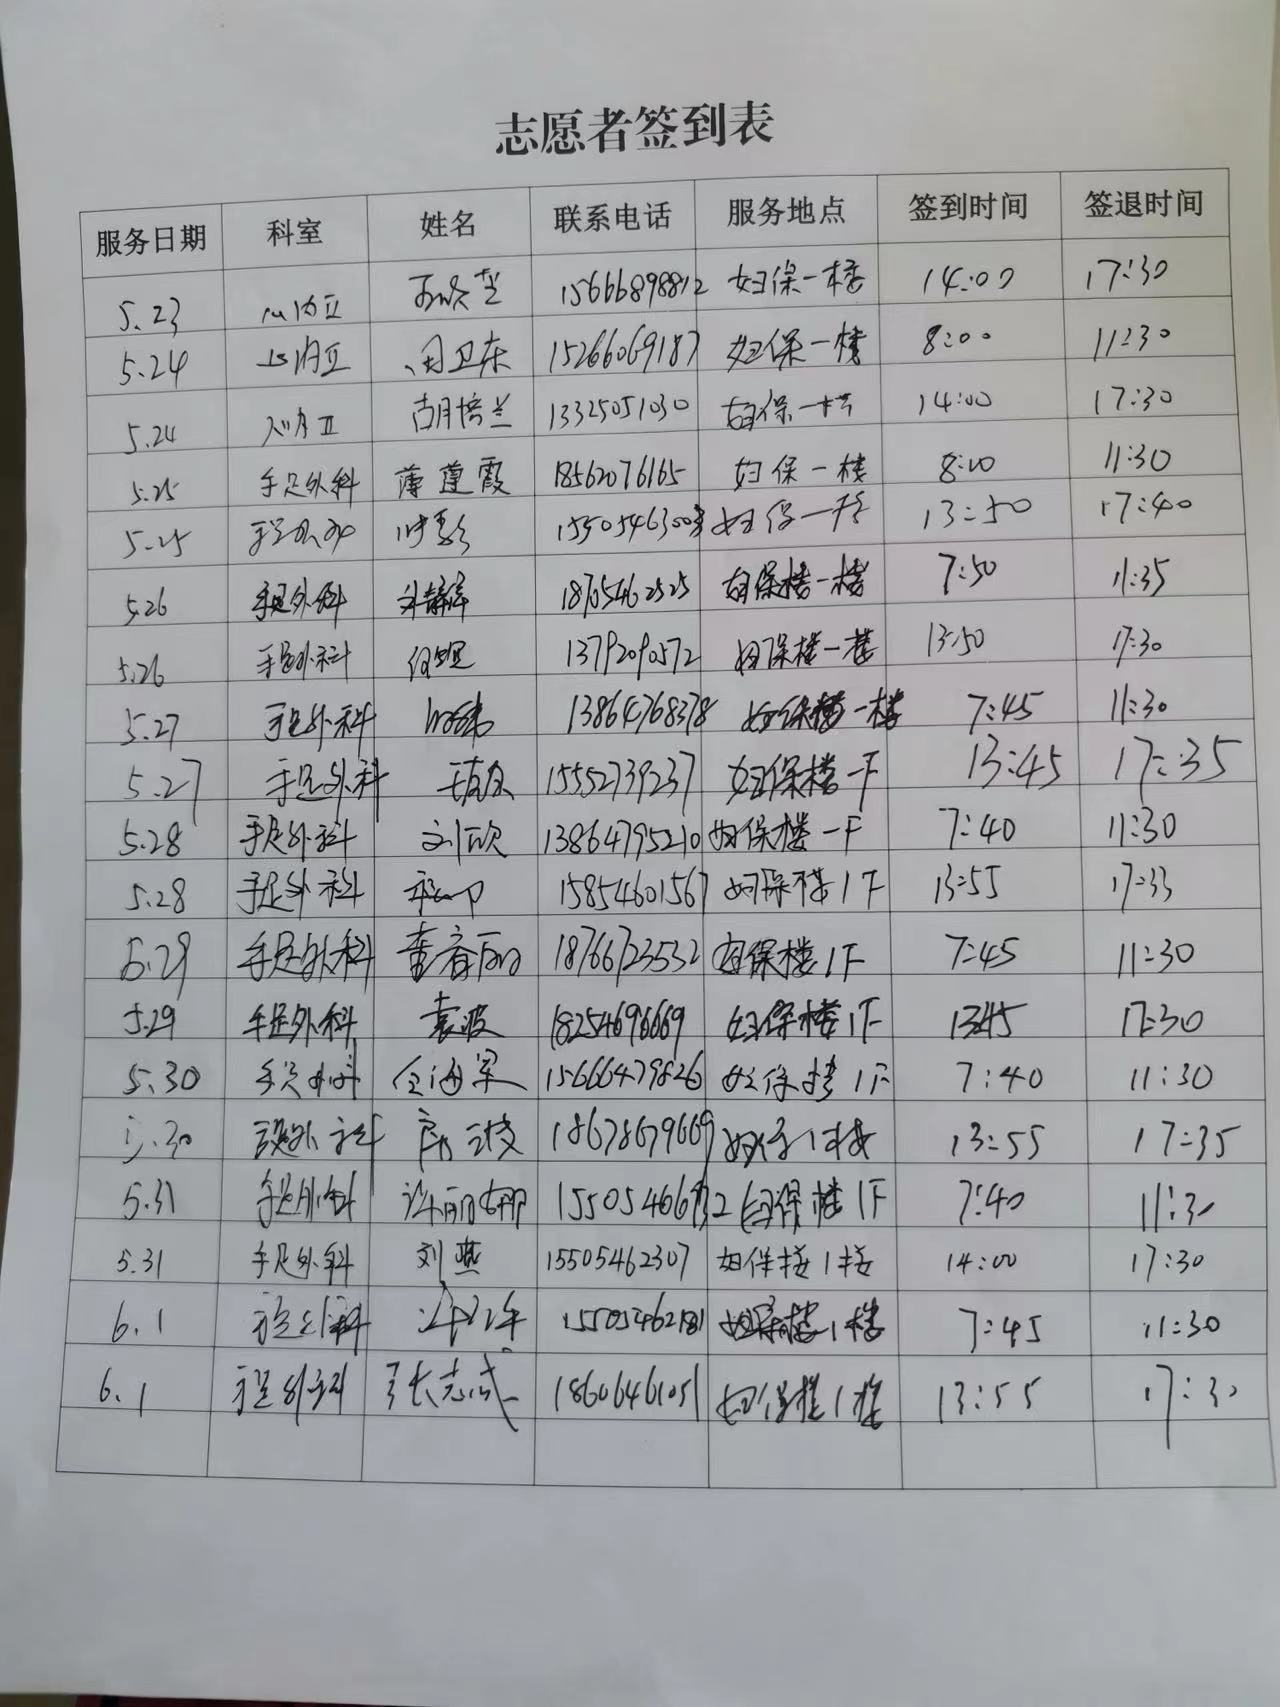 志愿者签到表
服务日期 科室 姓名 联系电话 服务地点 签到时间 签退时间
5.23 15666898812 妇保一楼 14:00 17:30
5.24 周卫东 15266069187 妇保一楼 8:00 11:30
5.24 胡培兰 13325051030 妇保一楼 14:00 17:30
5.25 手足外科 薄莲霞 18562076165 妇保一楼 8:00 11:30
5.25 手足外科 妇保一楼 13:50 17:40
5.26 手足外科 18705462525 妇保楼一楼 7:50 11:35
5.26 手足外科 13792090572 妇保楼一楼 13:50 17:30
5.27 手足外科 13864768378 妇保楼一楼 7:45 11:30
5.27 手足外科 15552739237 妇保楼一F 13:45 17:35
5.28 手足外科 刘欣 13864795210 妇保楼一F 7:40 11:30
5.28 手足外科 15854601567 妇保楼1F 13:55 17:33
5.29 手足外科 18766723532 妇保楼1F 7:45 11:30
5.29 手足外科 袁波 18254696669 妇保楼1F 1345 17:30
5.30 手足外科 15666479826 妇保楼1F 7:40 11:30
5.30 手足外科 18678679669 妇保1楼 13:55 17:35
5.31 手足外科 许丽娜 妇保楼1F 7:40 11:30
5.31 手足外科 刘燕 15505462307 妇保楼1楼 14:00 17:30
6.1 手足外科 15505462181 妇保楼1楼 7:45 11:30
6.1 手足外科 张志斌 18606461051 妇保楼1楼 13:55 17:30